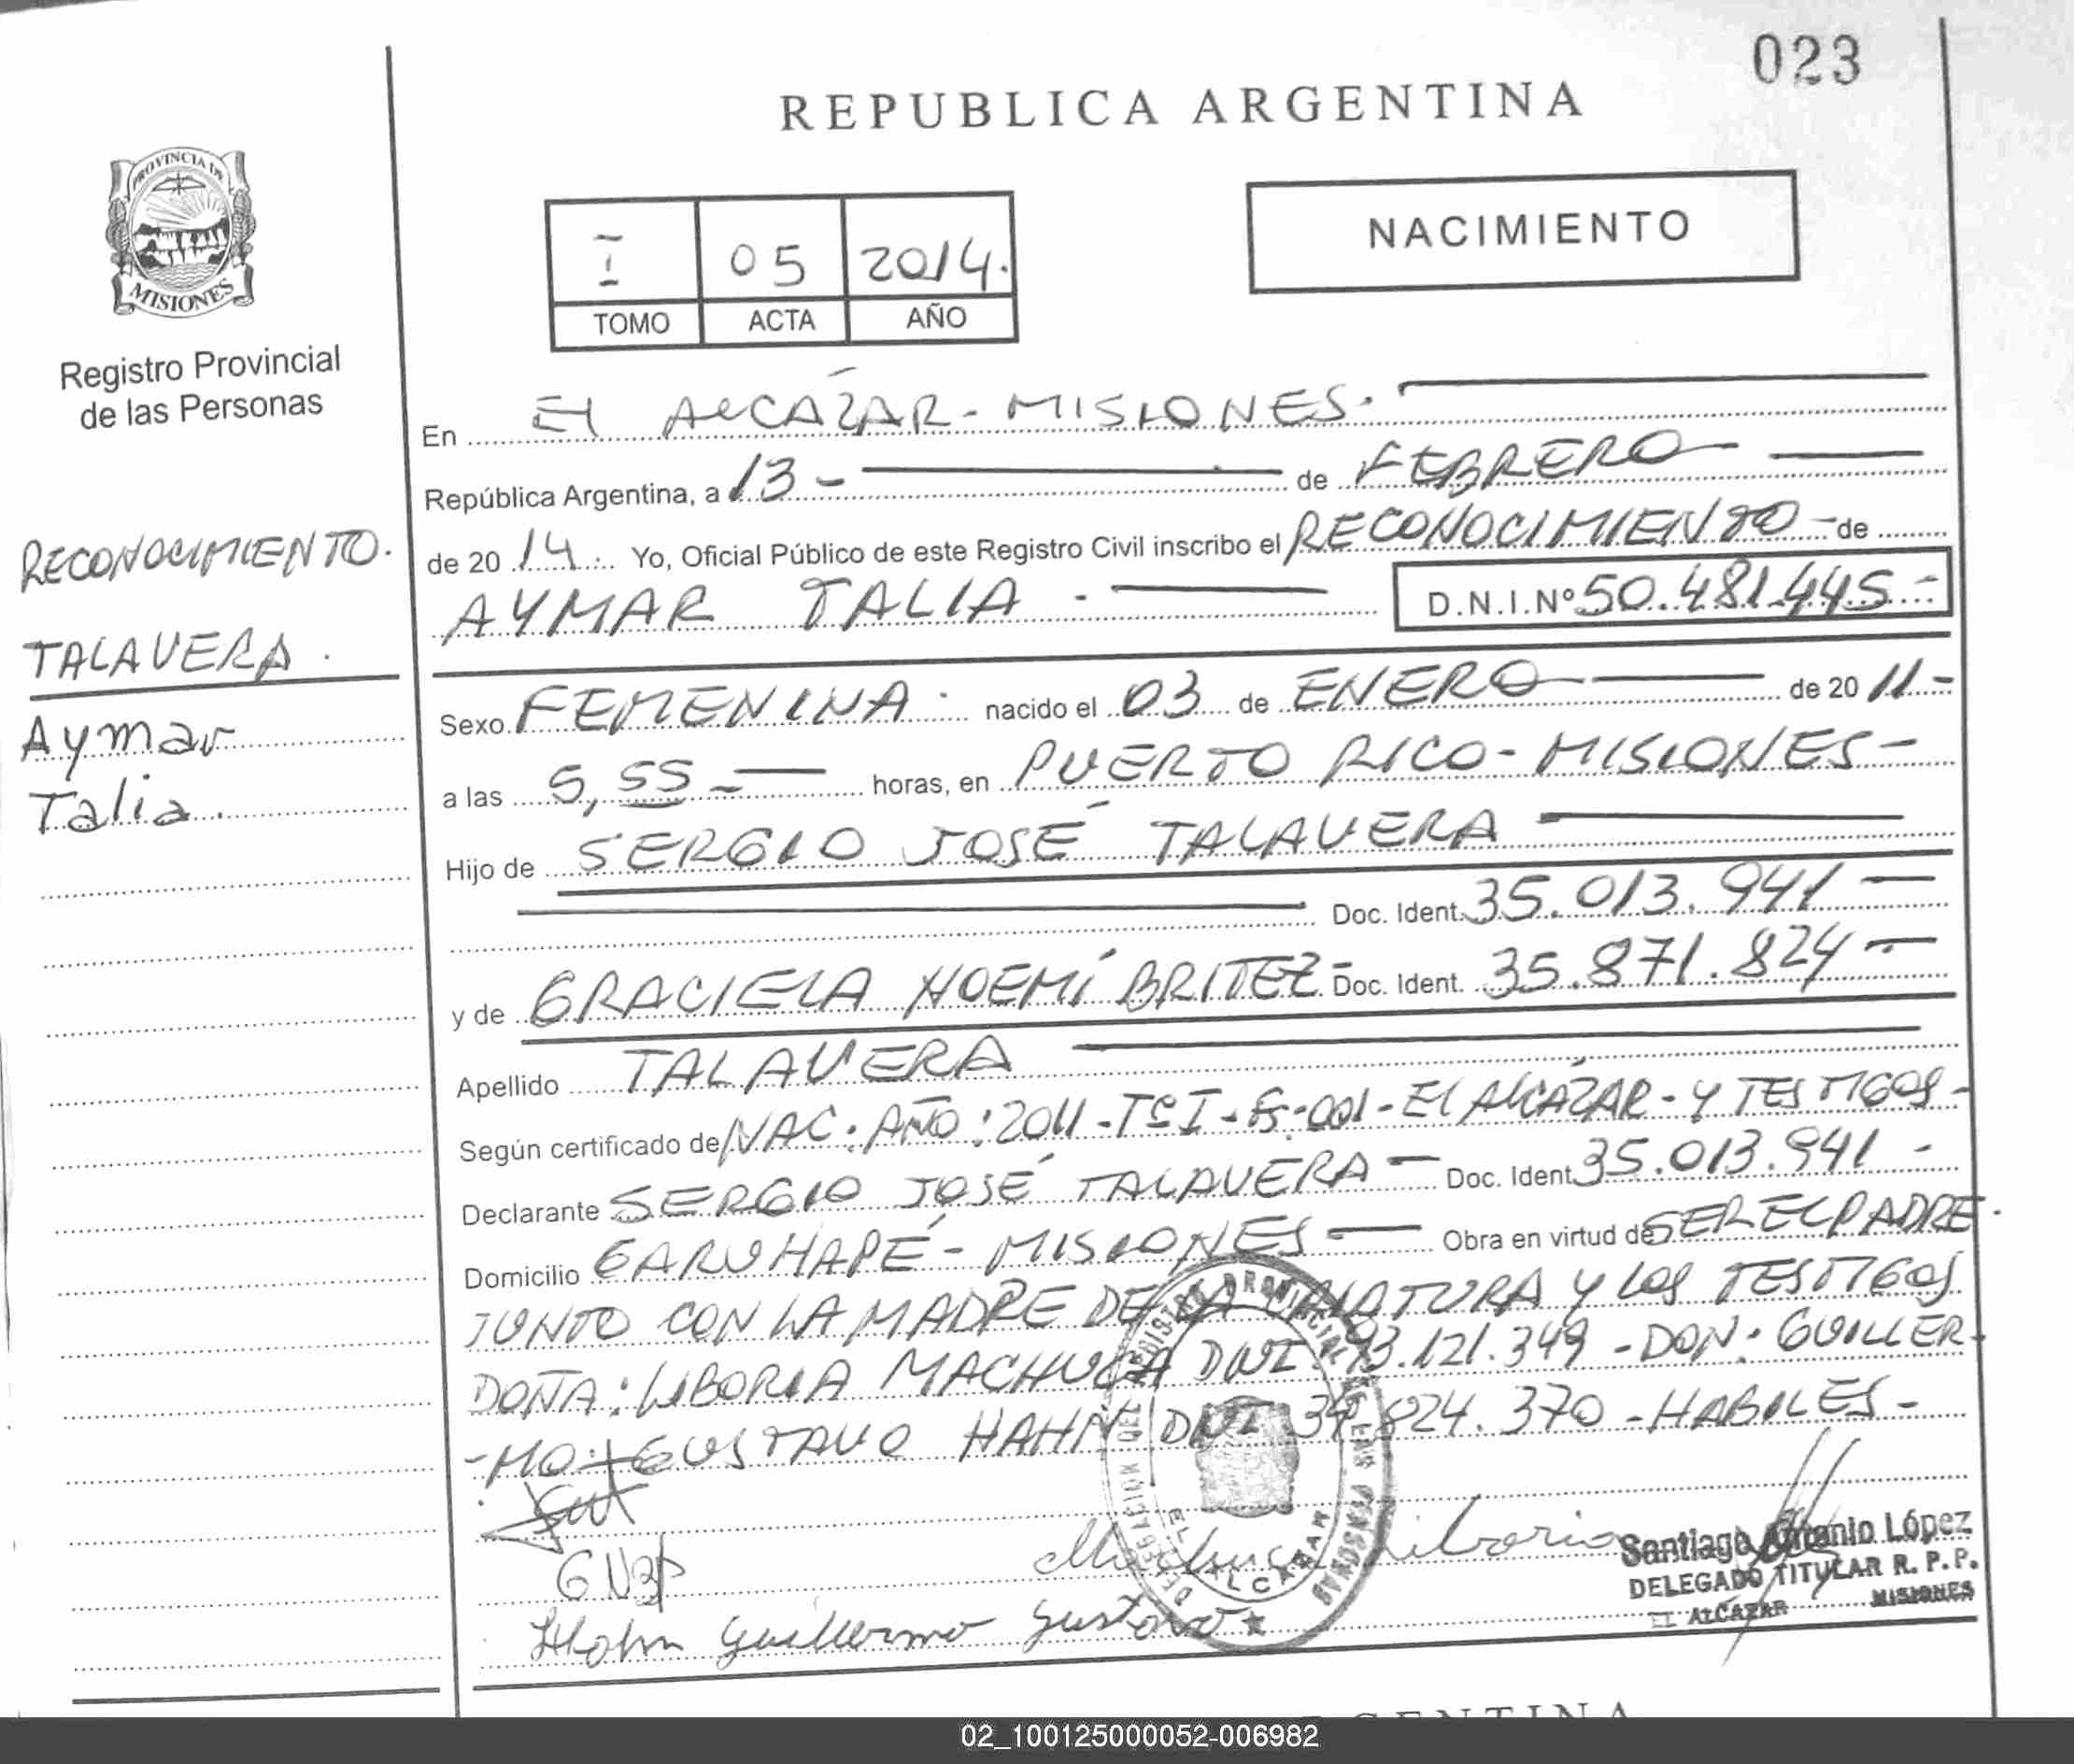 023
REPUBLICA ARGENTINA
PROVINCIA DE
MISIONES
Registro Provincial
de las Personas
I 05 2014.
TOMO ACTA AÑO
NACIMIENTO
RECONOCIMIENTO.
TALAVERA.
Aymar
Talia
En El ALCÁZAR - MISIONES.
República Argentina, a 13 - de FEBRERO
de 20 14. Yo, Oficial Público de este Registro Civil inscribo el RECONOCIMIENTO - de
AYMAR TALIA . - D.N.I.Nº 50.481.445.-
Sexo FEMENINA. nacido el 03 de ENERO de 20 11.-
a las 5,55 - horas, en PUERTO RICO - MISIONES -
Hijo de SERGIO JOSÉ TALAVERA
Doc. Ident. 35.013.941 -
y de GRACIELA NOEMÍ BRITEZ - Doc. Ident. 35.871.824 -
Apellido TALAVERA
Según certificado de NAC. AÑO: 2011 - Tº I - Fs-001 - El ALCÁZAR - Y TESTIGOS -
Declarante SERGIO JOSÉ TALAVERA - Doc. Ident. 35.013.941 -
Domicilio GARUHAPÉ - MISIONES - Obra en virtud de SER EL PADRE.
JUNTO CON LA MADRE DE LA CRIATURA Y LOS TESTIGOS
DOÑA: LIBORIA MACHUCA DNI 93.121.349 - DON: GUILLER-
-MO GUSTAVO HAHN DNI 824.370 - HABILES -
Liboria
Hahn Guillermo Gustavo
DELEGACION DEL REGISTRO PROVINCIAL DE LAS PERSONAS
EL ALCAZAR
Santiago Antonio López
DELEGADO TITULAR R. P. P.
EL ALCAZAR MISIONES
02_100125000052-006982